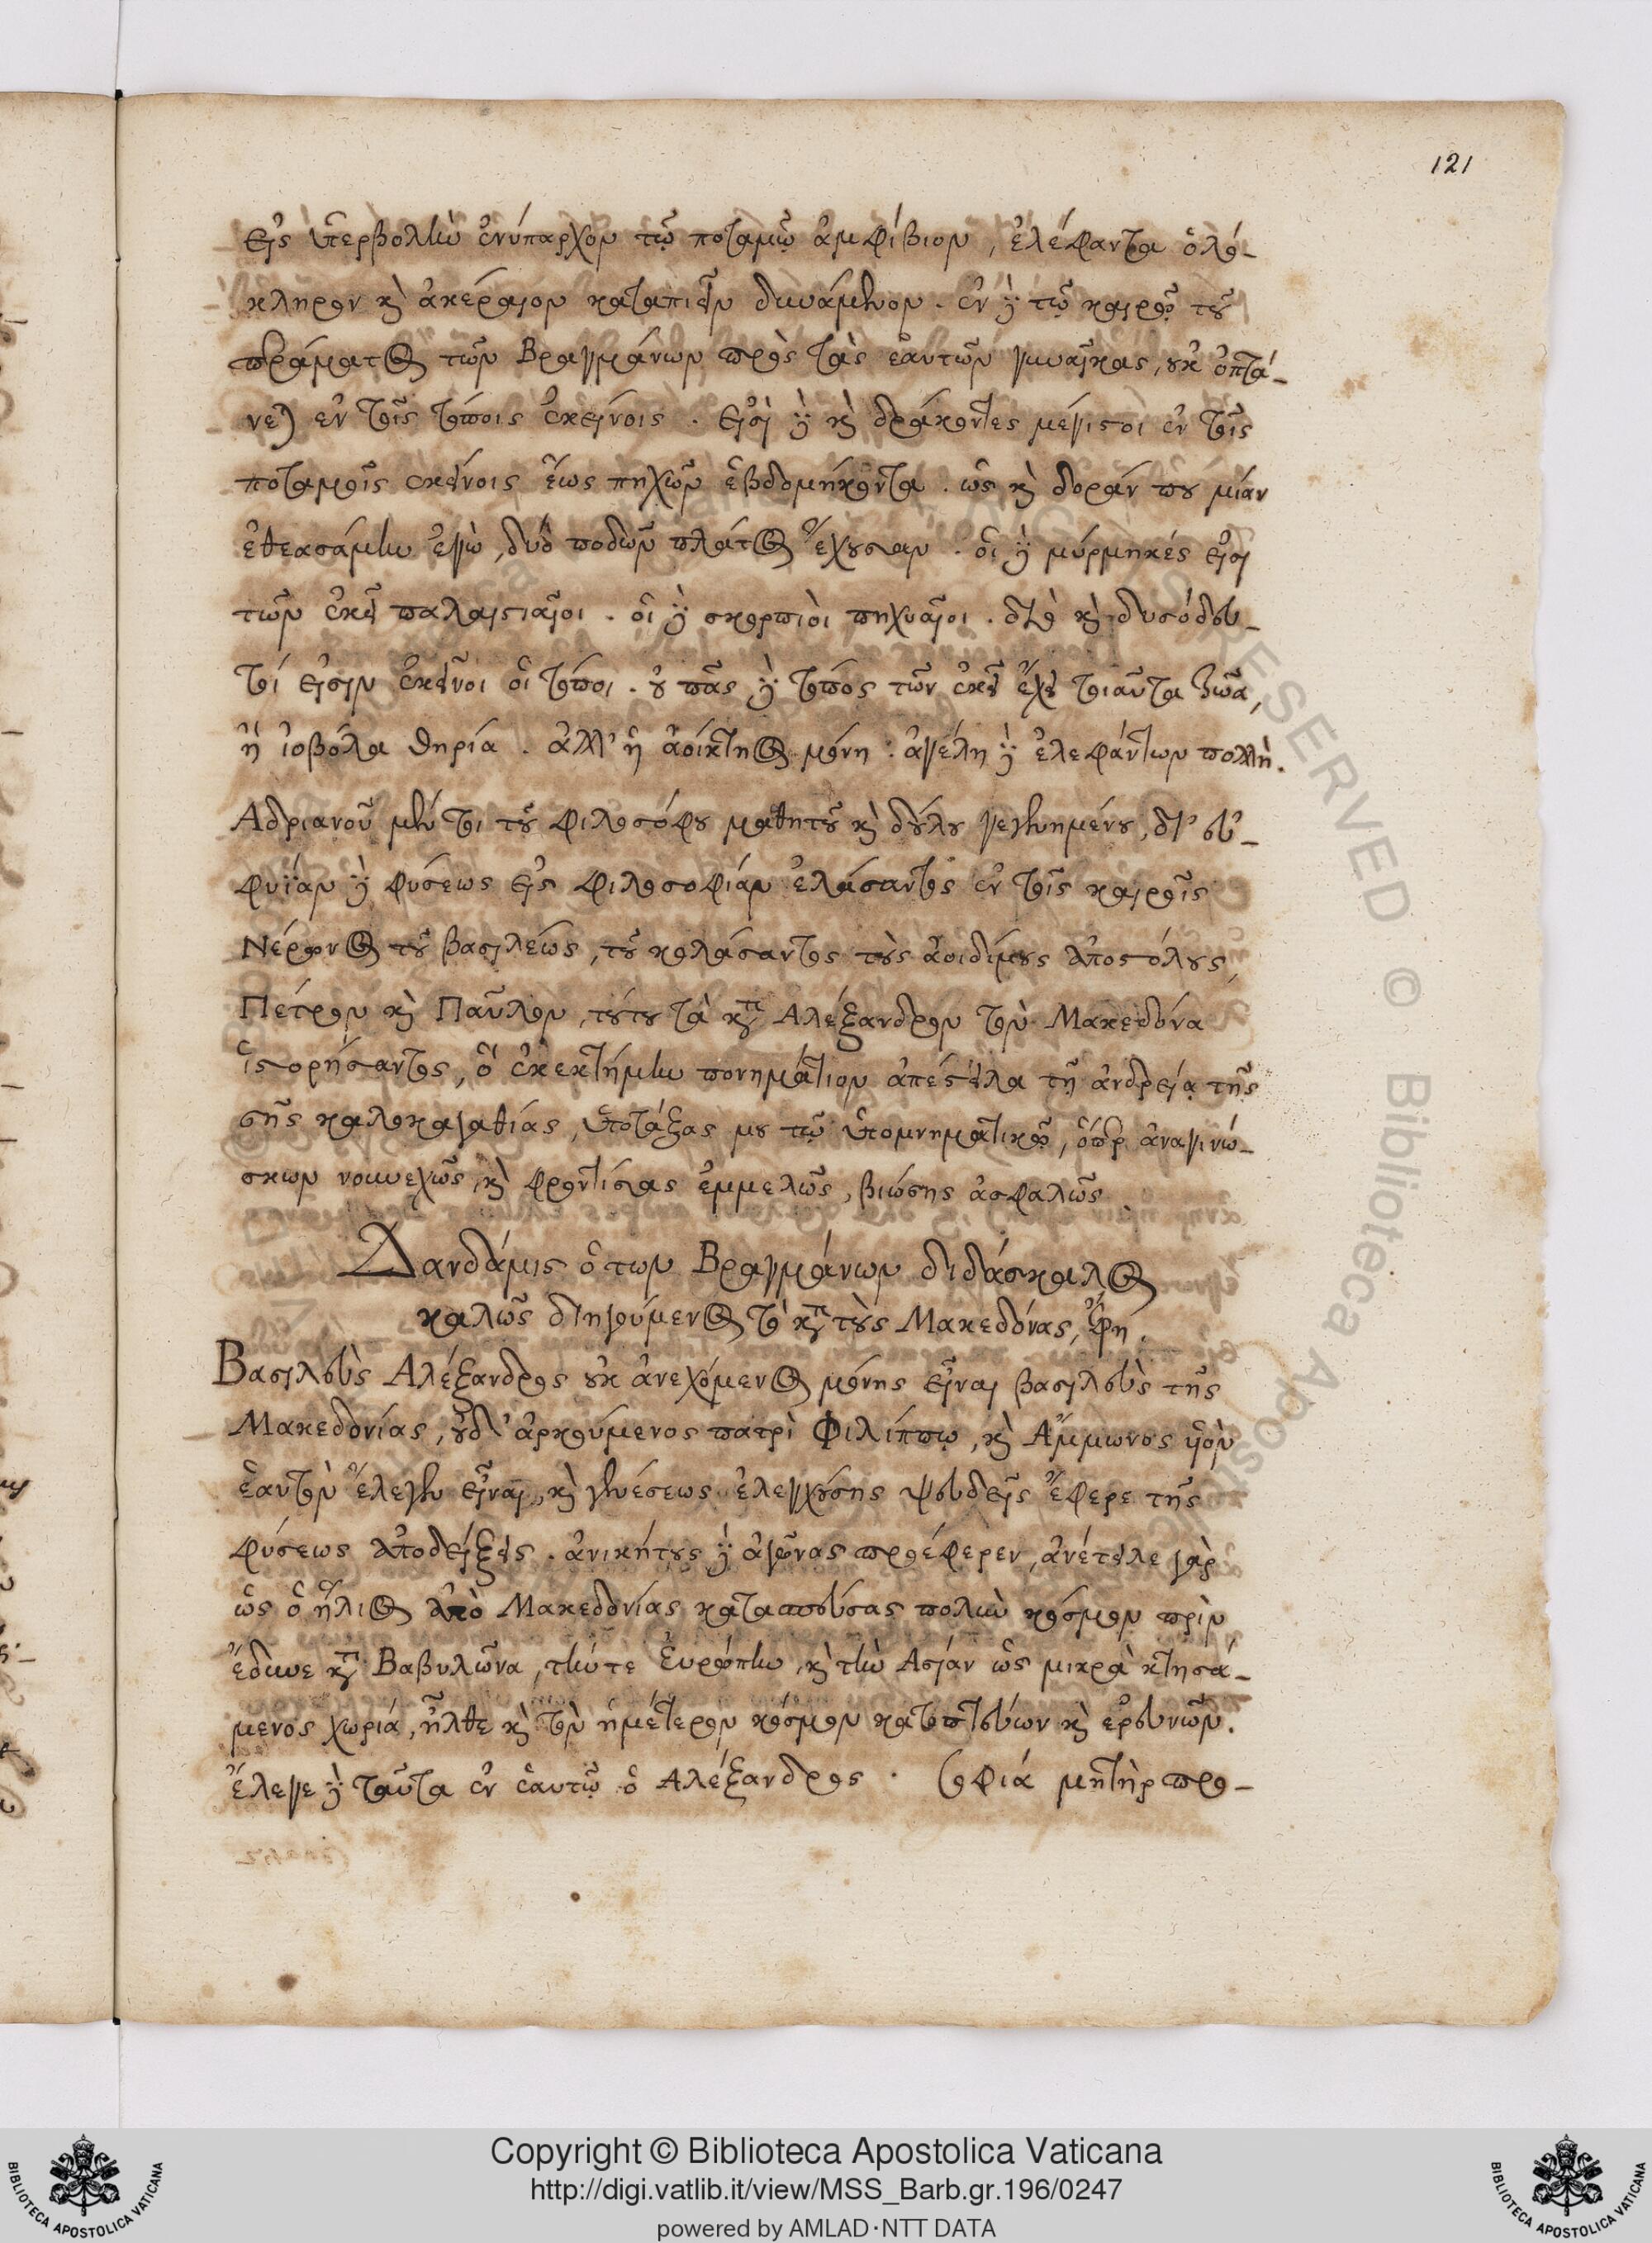 121
εἰς ὑπερβολὴν ἐνύπαρχον τῷ ποταμῷ ἀμφίβιον, ἐλέφαντα ὁλό-
κληρον κὴ ἀκέραιον καταπιεῖν δυνάμενον. ἐν δὲ τῷ καιρῷ τοῦ
περάματος τῶν Βραγμάνων πρὸς τὰς ἑαυτῶν γυναῖκας, οὐκ ὀπτά-
νεται ἐν τοῖς τόποις ἐκείνοις. εἰσὶ δὲ κὴ δράκοντες μέγιστοι ἐν τοῖς
ποταμοῖς ἐκείνοις ἕως πηχῶν ἑβδομήκοντα. ὡς κὴ δοράν που μίαν
ἐθεασάμην ἐγὼ, δύο ποδῶν πλάτος ἔχουσαν. οἱ δὲ μύρμηκές εἰσι
τῶν ἐκεῖ παλαισιαῖοι. οἱ δὲ σκορπιοὶ πηχυαῖοι. διὸ κὴ δυσόδευ-
τοί εἰσιν ἐκεῖνοι οἱ τόποι. οὐ πᾶς δὲ τόπος τῶν ἐκεῖ ἔχει τοιαῦτα ζῶα,
ἢ ἰοβόλα θηρία. ἀλλ' ἡ ἀοίκητος μόνη. ἀγέλη δὲ ἐλεφάντων πολλὴ.
Αδριανοῦ μέν τοι τοῦ φιλοσόφου μαθητοῦ κὴ δούλου γεγενημένου, δι' εὐ-
φυΐαν δὲ φύσεως εἰς φιλοσοφίαν ἐλάσαντος ἐν τοῖς καιροῖς
Νέρωνος τοῦ βασιλέως, τοῦ κολάσαντος τοὺς ἀοιδίμους ἀποστόλους,
Πέτρον κὴ Παῦλον, τούτου τὰ κατ Αλέξανδρον τὸν Μακεδόνα
ἱστορήσαντος, ὃ ἐκεκτήμην πονημάτιον ἀπέστειλα τῇ ἀνδρείᾳ τῆς
σῆς καλοκαγαθίας, ὑποτάξας μου τῷ ὑπομνηματικῷ, ὅπερ ἀναγινώ-
σκων νουνεχῶς, κὴ φροντίσας ἐμμελῶς, βιώσης ἀσφαλῶς.
Δανδάμις ὁ των Βραγμάνων διδάσκαλος
καλῶς διηγούμενος τὸ κατὰ τοὺς Μακεδόνας, ἔφη.
Βασιλεὺς Αλέξανδρος οὐκ ἀνεχόμενος μόνης εἶναι βασιλεὺς τῆς
Μακεδονίας, οὐδ' ἀρκούμενος πατρὶ Φιλίππῳ, κὴ Αμμωνος υἱὸν
ἑαυτὸν ἔλεγεν εἶναι, κὴ γενέσεως ἐλεγχούσης ψευδεῖς ἔφερε τῆς
φύσεως ἀποδείξεις. ἀνικήτους δὲ ἀγῶνας προέφερεν, ἀνέτειλε γὰρ
ὡς ὁ ἥλιος ἀπὸ Μακεδονίας καταπεύσας πολὺν κόσμον πρὶν
ἔδυνε κατὰ Βαβυλῶνα, τήν τε Εὐρώπην, κὴ τὴν Ασίαν ὡς μικρὰ κτησά-
μενος χωριά, ἦλθε κὴ τὸν ἡμέτερον κόσμον κατοπτεύων κὴ ἐρευνῶν.
ἔλεγε δὲ ταῦτα ἐν ἑαυτῷ ὁ Αλέξανδρος. Σοφιά μητὴρ προ-
Copyright © Biblioteca Apostolica Vaticana
http://digi.vatlib.it/view/MSS_Barb.gr.196/0247
powered by AMLAD·NTT DATA
BIBLIOTECA APOSTOLICA VATICANA
BIBLIOTECA APOSTOLICA VATICANA